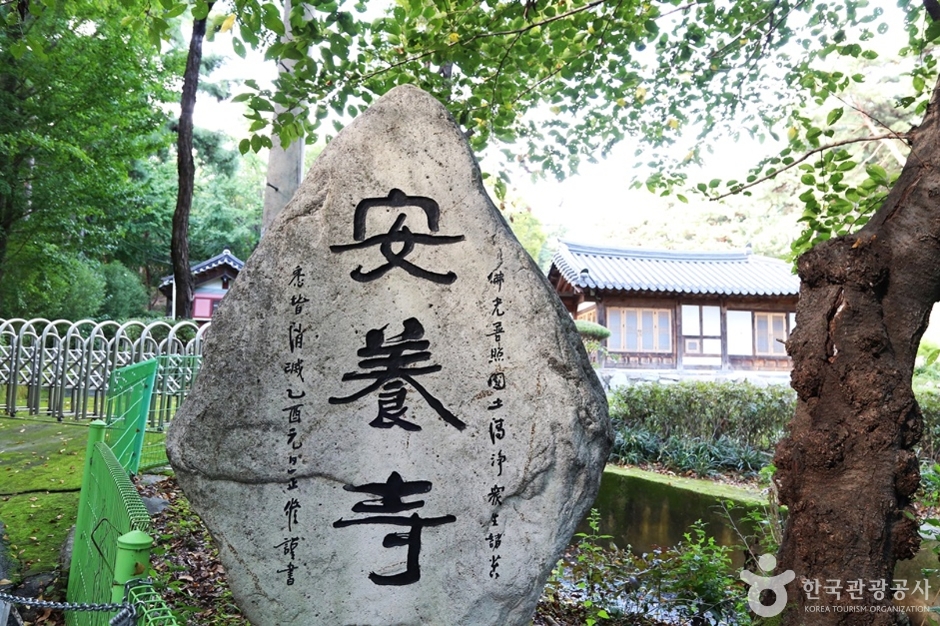 安養寺
佛光普照國土清淨 衆生諸苦
悉皆消滅 乙酉元旦 正修 謹書
한국관광공사
KOREA TOURISM ORGANIZATION